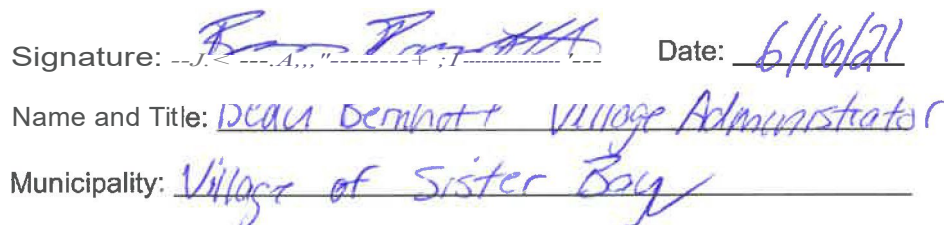 Signature: Date: 6/16/21
Name and Title: Beau Bernhoft Village Administrator
Municipality: Village of Sister Bay